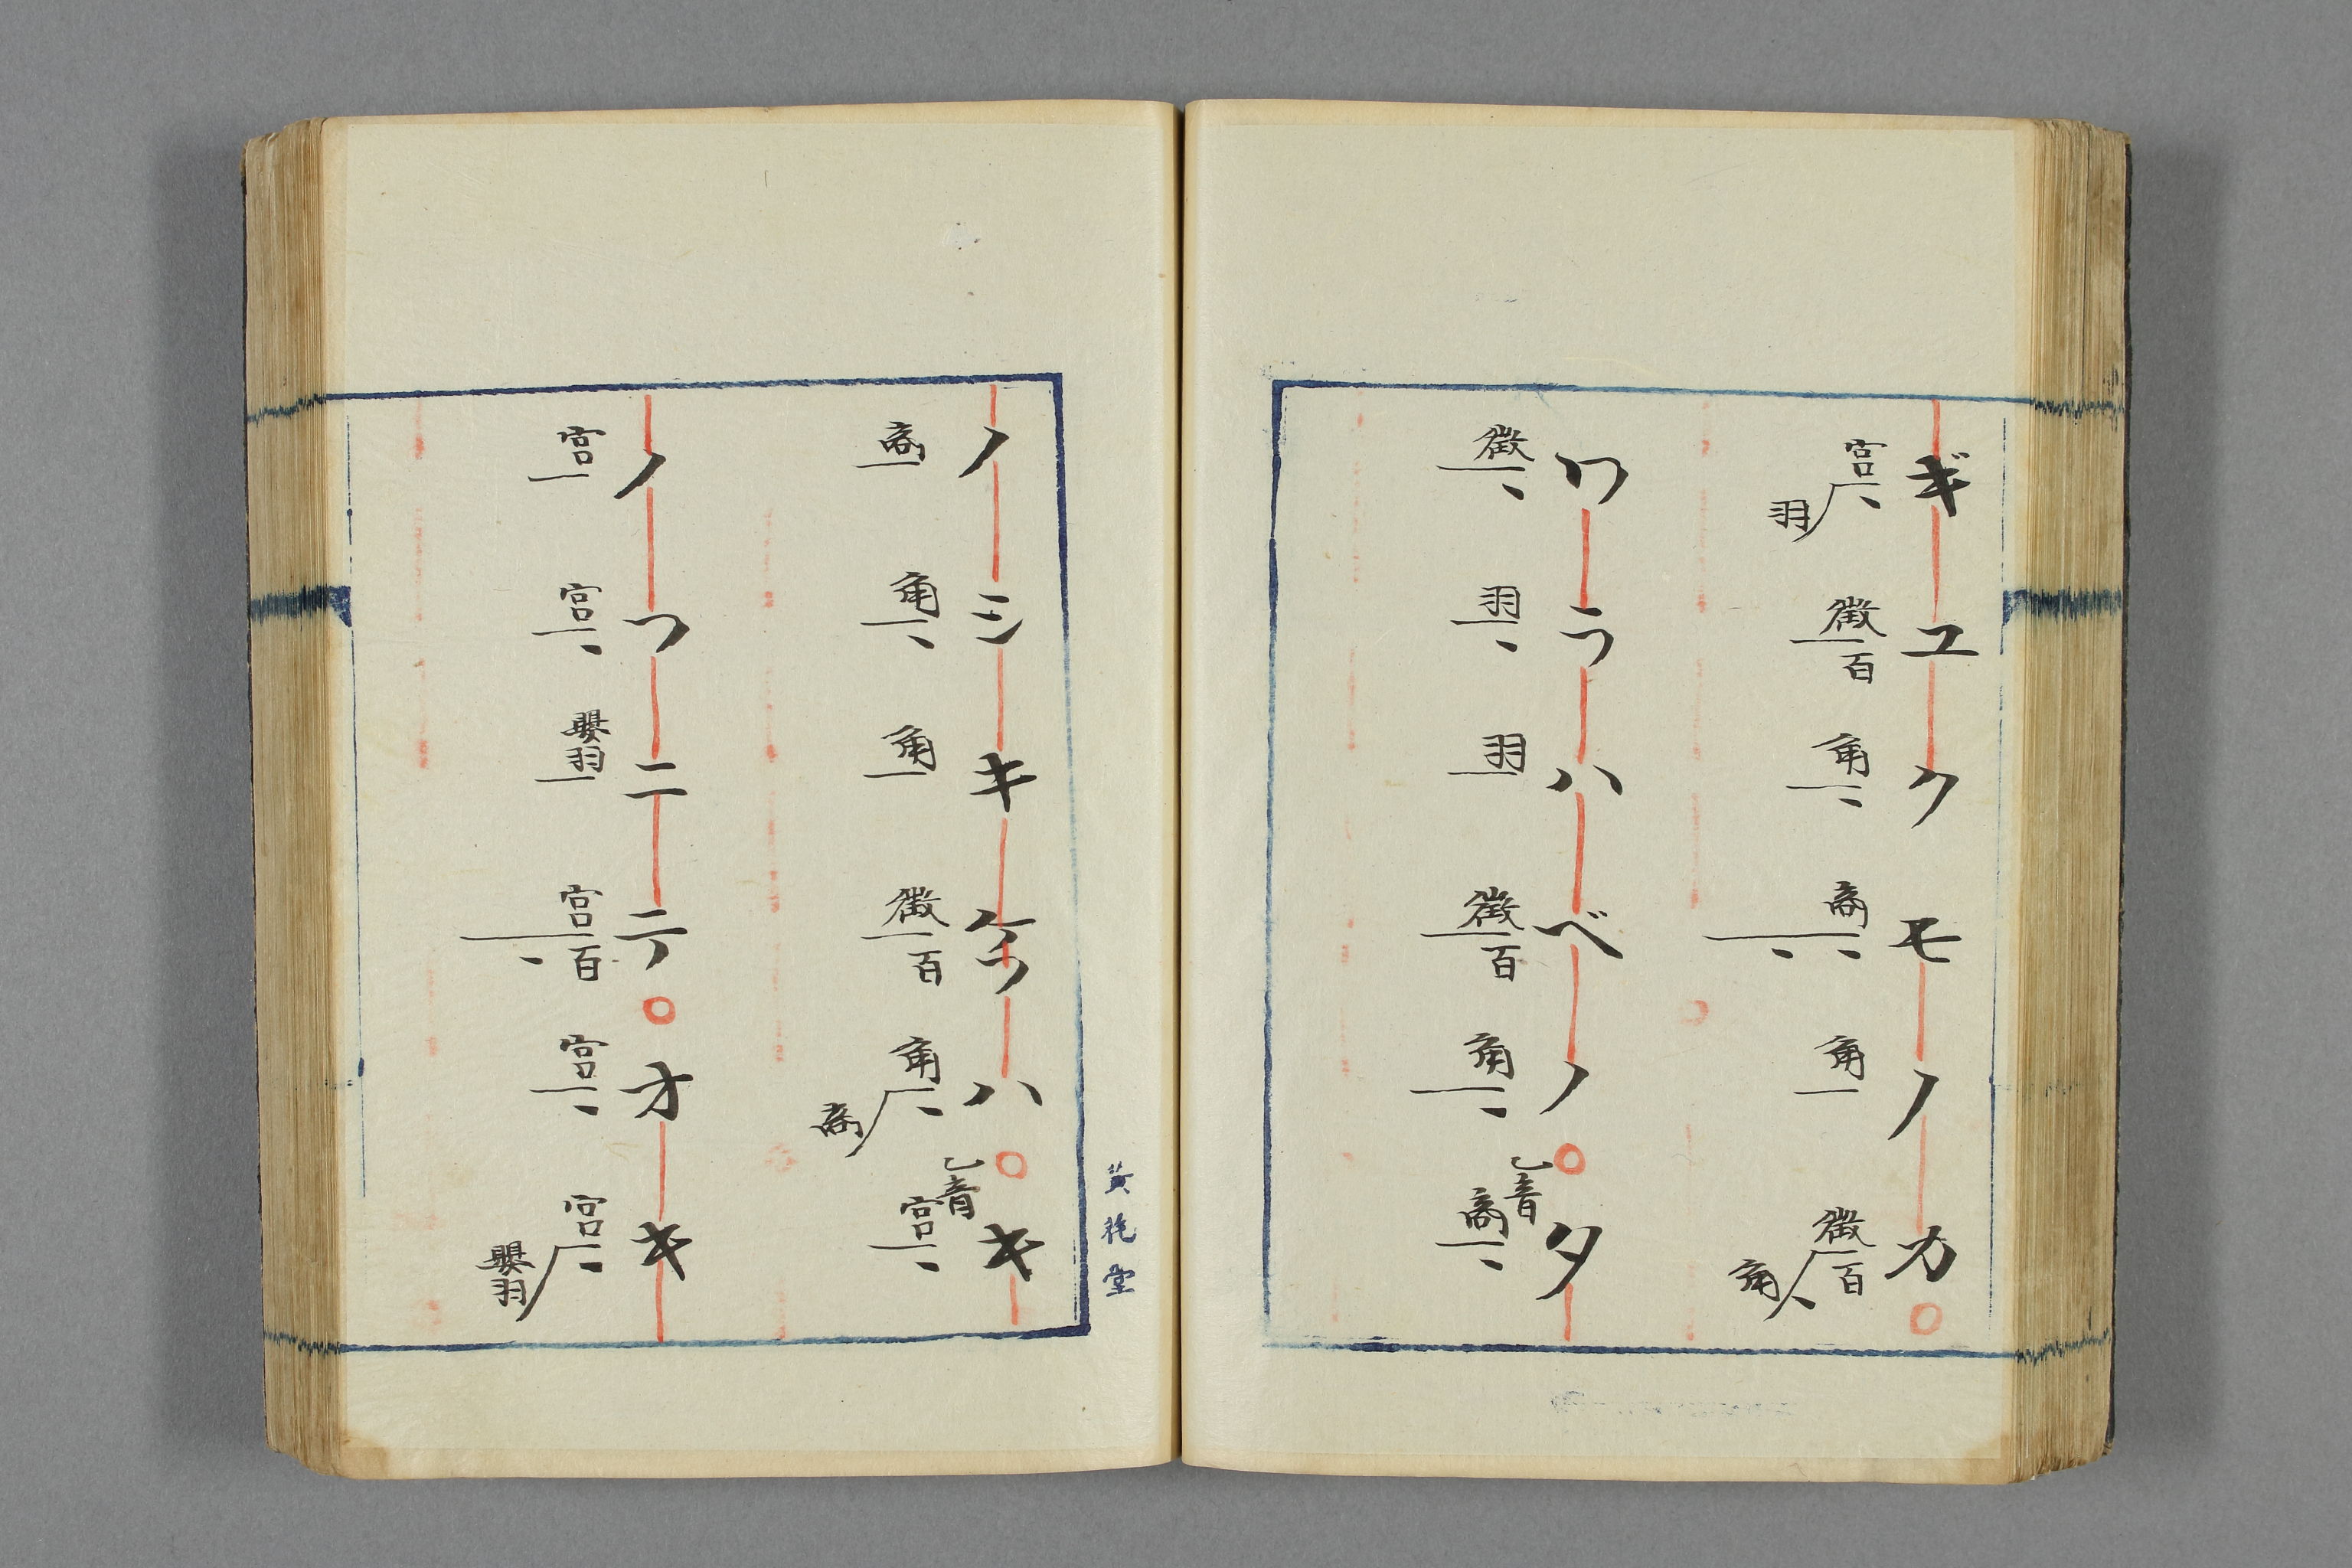 ギユクモノカ
宮羽徴百角商角徴百角
ワラハベノタ
徴羽羽徴百角乙音商
ノシキケフハキ
商角角徴百角商乙音宮
ノフニテオキ
宮宮嬰羽宮百宮宮嬰羽
堂